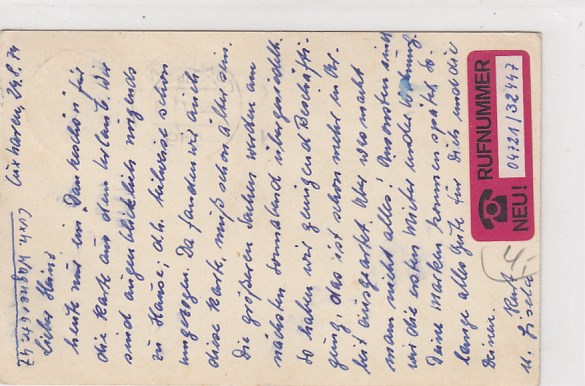 Cuxhaven, 24.8.74
Cuxh. Wagnerstr. 47
Lieber Heinz
heute nur ein Dankeschön für
die Karte aus dem Urlaub. Wir
sind augenblicklich nirgends
zu Hause; d.h. teilweise schon
umgezogen. Da fanden wir auch
diese Karte, muß schon alt sein.
Die größeren Sachen werden am
nächsten Sonnabend übergesiedelt.
So haben wir genügend Beschäfti-
gung, das ist schon mehr in Ar-
beit ausgeartet. Aber was macht
man nicht alles! Ansonsten sind
wir die ersten Mieter in der Wohnung.
Deine Marken kommen später. So
lange alles Gute für Dich und die
Deinen.
Kurt
u. Gisela
RUFNUMMER
NEU!
04721/38447
4,-